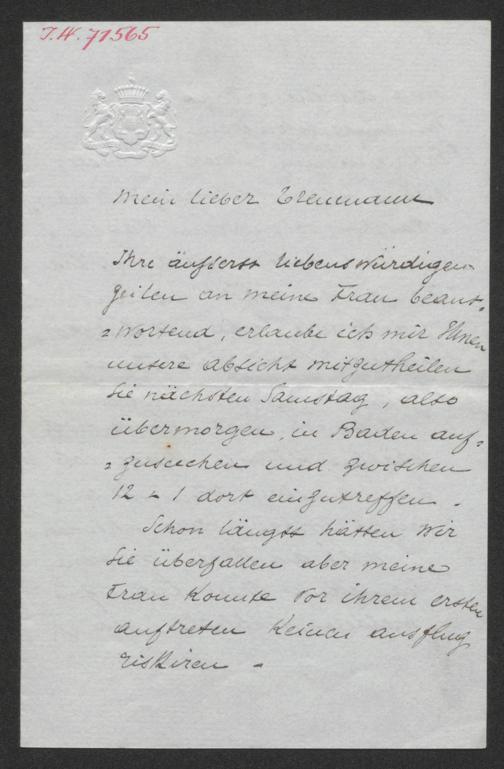 I.N. 71565
Mein lieber Ehrmann
Ihre äusserst liebenswürdigen
Zeilen an meine Frau beant-
=wortend, erlaube ich mir Ihnen
unsere Absicht mitzutheilen
Sie nächsten Samstag, also
übermorgen, in Baden auf=
=zusuchen und zwischen
12 - 1 dort einzutreffen.
Schon längst hätten wir
Sie überfallen aber meine
Frau konnte vor ihrem ersten
auftreten keinen ausflug
riskiren -